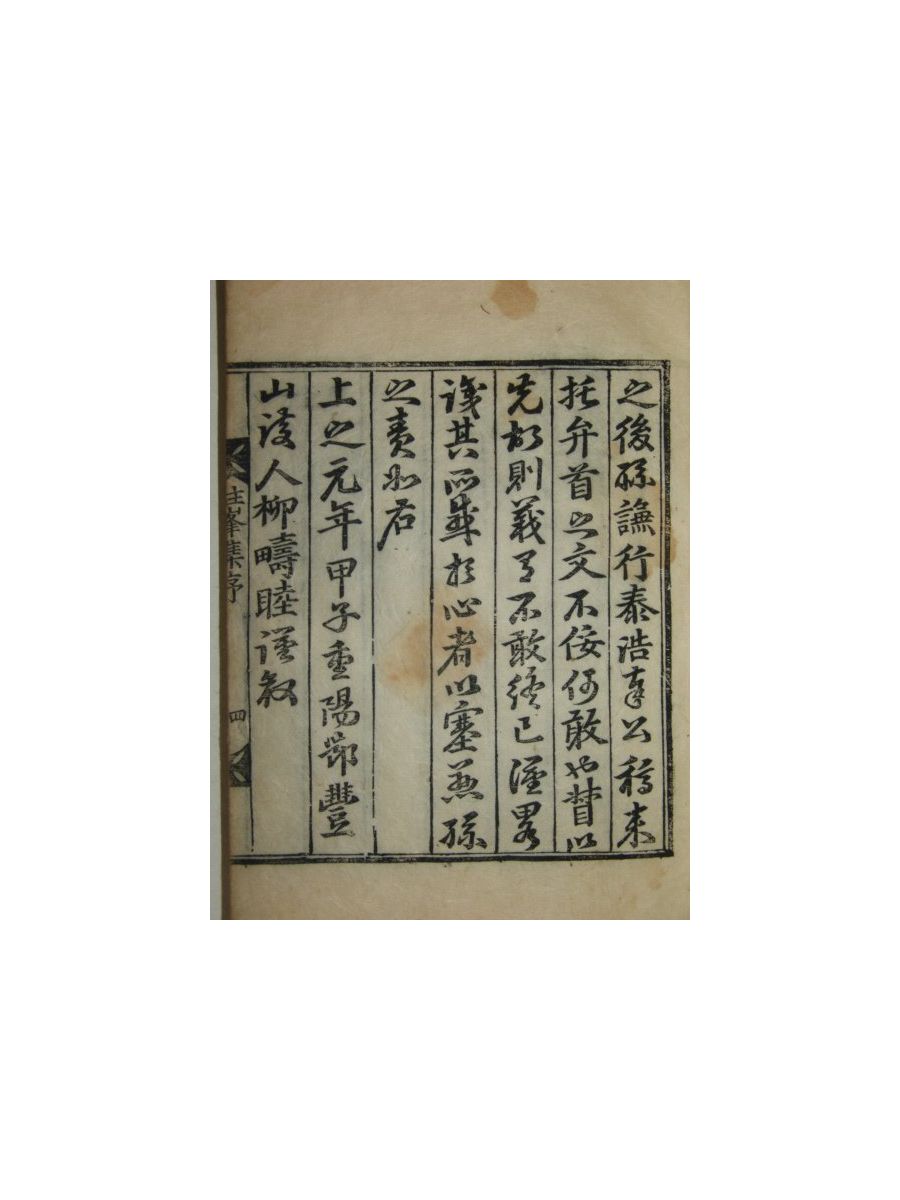 之後孫讌行泰浩奉公稿来
托弁首之文不佞何敢也替以
先故則義有不敢終已謹畧
識其所感於心者以塞慈孫
之責如右
上之元年甲子重陽鄀豐
山後人柳疇睦謹敘
峯集序
四